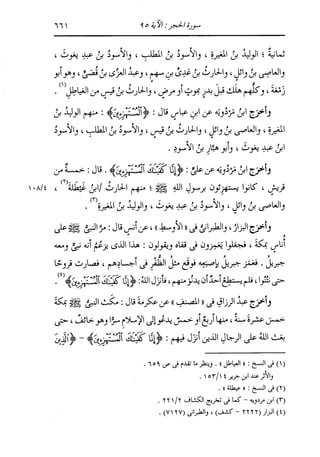 سورة الحجر : الآية ٩٥
٦٦١
ثمانية : الوليدُ بنُ المغيرةِ ، والأسودُ بنُ المطلبِ ، والأسودُ بنُ عبدِ يغوثَ ،
والعاصى بنُ وائلٍ ، والحارثُ بنُ عَدِىِّ بنِ سهمٍ ، وعبدُ العزَّى بنُ قُصَىٍّ ، وهو أبو
زَمْعَةَ ، وكلُّهم هلَك قبلَ بدرٍ بموتٍ أو مرضٍ ، والحارثُ بنُ قيسٍ من العياطلِ(١) .
وأخرَج ابنُ مَرْدُويَه عن ابنِ عباسٍ قال : ﴿ٱلْمُسْتَهْزِءِينَ﴾ : منهم الوليدُ بنُ
المغيرةِ ، والعاصى بنُ وائلٍ ، والحارثُ بنُ قيسٍ ، والأسودُ بنُ المطلبِ ، والأسودُ
ابنُ عبدِ يغوثَ ، وأبو هبَّارِ بنُ الأسودِ .
وأخرَج ابنُ مَرْدُويَه عن علىٍّ : ﴿إِنَّا كَفَيْنَٰكَ ٱلْمُسْتَهْزِءِينَ﴾ . قال : خمسةٌ من
قريشٍ ، كانوا يستهزئون برسولِ اللهِ ﷺ ؛ منهم الحارثُ /ابنُ عَيْطَلةَ(٢) ،
١٠٨/٤
والعاصى بنُ وائلٍ ، والأسودُ بنُ عبدِ يغوثَ ، والوليدُ بنُ المغيرةِ(٣) .
وأخرَج البزارُ ، والطبرانىُّ فى « الأوسطِ » ، عن أنسٍ قال : مرَّ النبىُّ ﷺ على
أُناسٍ بمكةَ ، فجعَلوا يَغمِزون فى قفاه ويقولون : هذا الذى يزعُمُ أنه نبىٌّ ومعه
جبريلُ . فغمَز جبريلُ بإصبعِه فوقَع مثلُ الظُّفُرِ فى أجسادِهم ، فصارت قروحًا
حتى نَتُنوا ، فلم يستطِعْ أحدٌ أن يدنُوَ منهم ، فأنزَل اللهُ : ﴿إِنَّا كَفَيْنَٰكَ ٱلْمُسْتَهْزِءِينَ﴾(٤) .
وأخرَج عبدُ الرزاقِ فى « المصنفِ » عن عكرمةَ قال : مكَث النبىُّ ﷺ بمكةَ
خمسَ عشرةَ سنةً ، منها أربعٌ أو خمسٌ يدعو إلى الإسلامِ سرًّا وهو خائفٌ ، حتى
بعَث اللهُ على الرجالِ الذين أنزَل فيهم : ﴿إِنَّا كَفَيْنَٰكَ ٱلْمُسْتَهْزِءِينَ﴾ - ﴿ٱلَّذِينَ
(١) فى النسخ : « العياطل » . وينظر ما تقدم فى ص ٦٥٩ .
والأثر عند ابن جرير ١٥٣/١٤ .
(٢) فى النسخ : « عيطلة » .
(٣) ابن مردويه - كما فى تخريج الكشاف ٢٢١/٢ .
(٤) البزار (٢٢٢٢ - كشف) ، والطبرانى (٧١٢٧) .